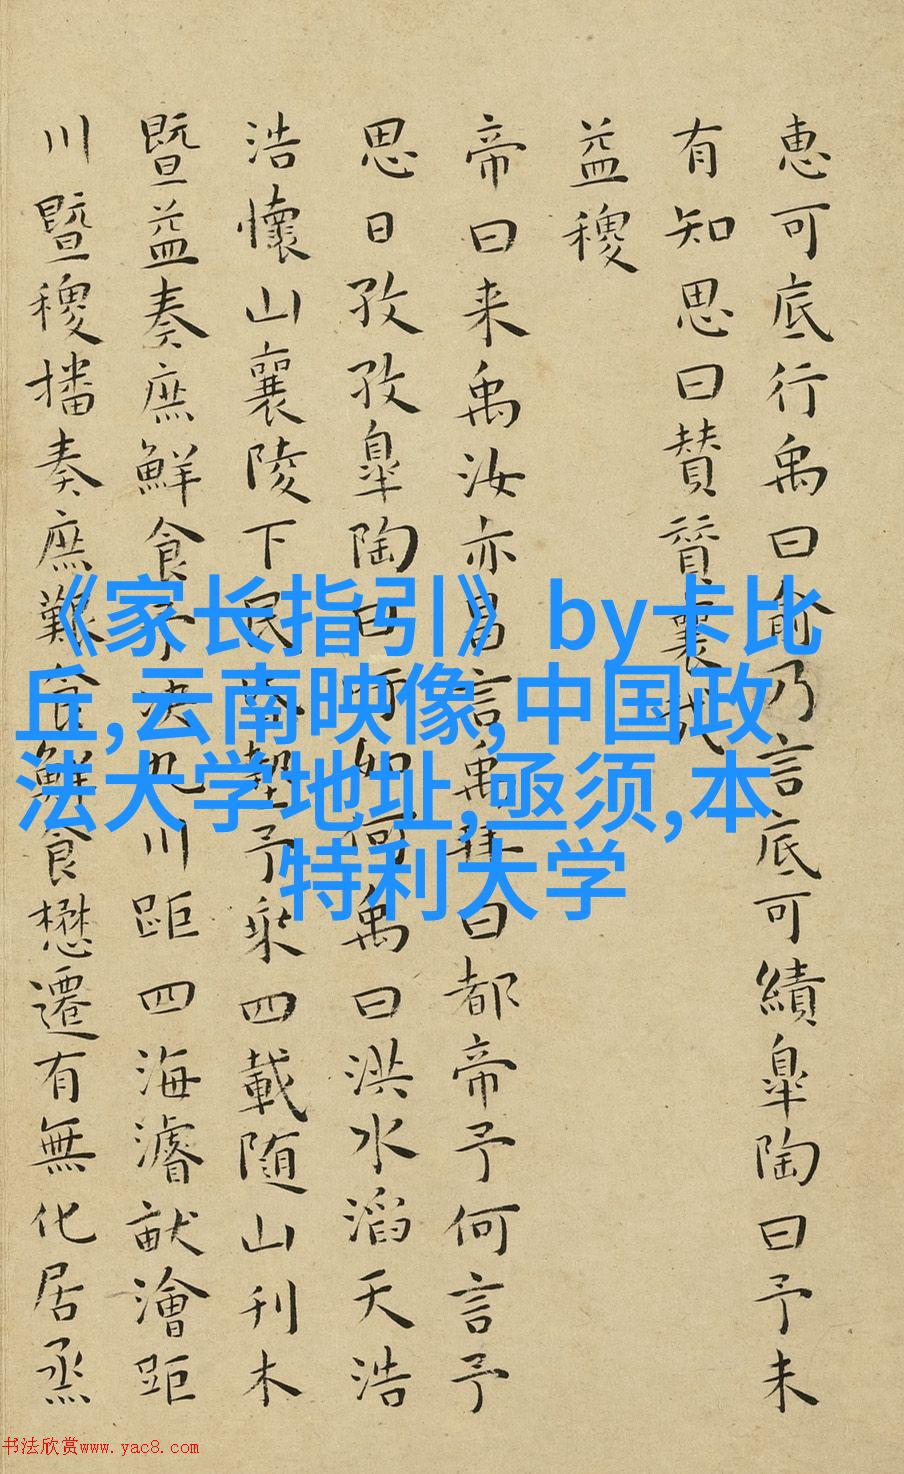 惠可底行禹曰俞乃言底可績皐陶曰予未
有知思曰贊贊襄哉
益稷
帝曰来禹汝亦昌言禹拜曰都帝予何言予
思日孜孜皐陶曰吁如何禹曰洪水滔天浩
浩懷山襄陵下民昏墊予乘四載随山刊木
暨益奏庶鮮食予决九川距四海濬畎澮距
川暨稷播奏庶艱食鮮食懋遷有無化居烝
《家长指引》by卡比
丘,云南映像,中国政
法大学地址,亟须,本
特利大学
书法欣赏www.yac8.com